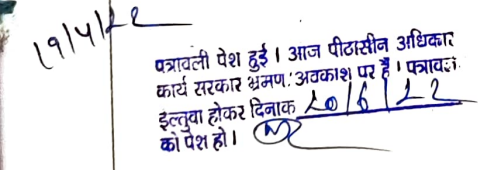 19/4/22
पत्रावली पेश हुई। आज पीठासीन अधिकार
कार्य सरकार भ्रमण/अवकाश पर है। पत्रावल
इल्तुवा होकर दिनाक 20/6/22
को पेश हो।